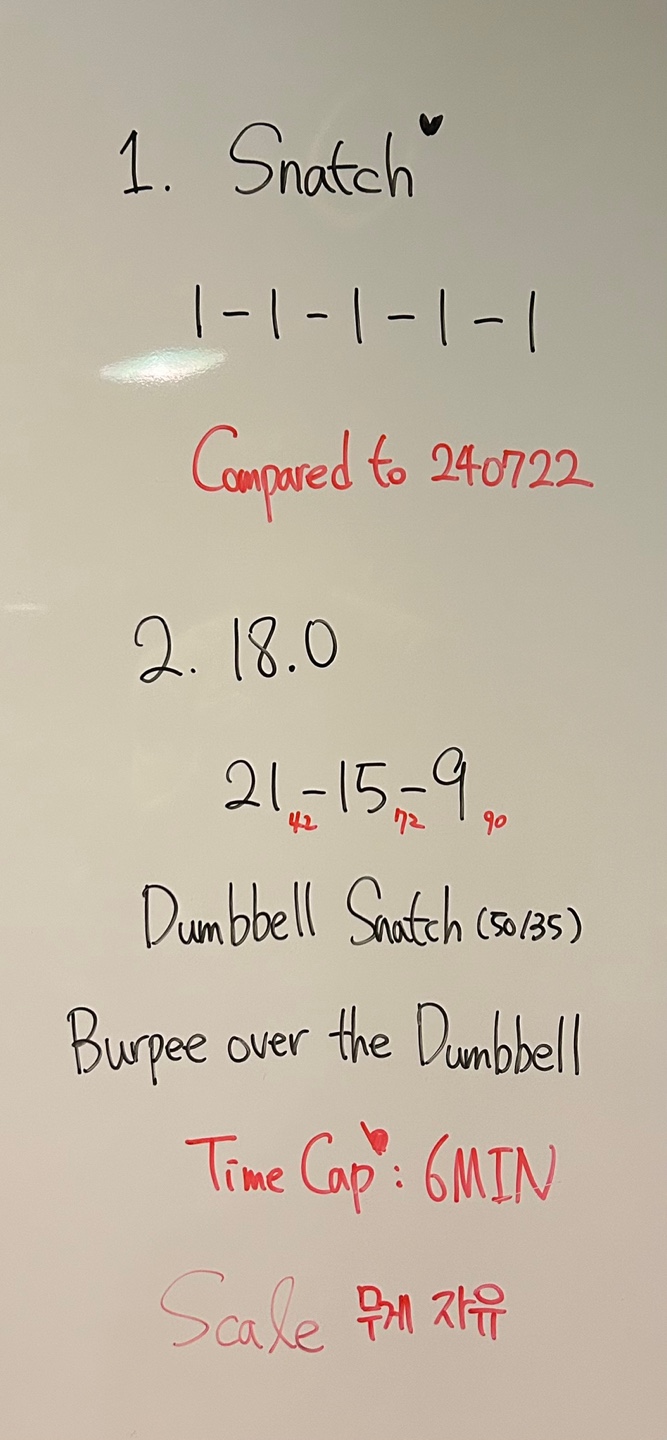 1. Snatch
1-1-1-1-1
Compared to 240722
2. 18.0
21-15-9
42 72 90
Dumbbell Snatch (50/35)
Burpee over the Dumbbell
Time Cap: 6MIN
Scale 무게 자유